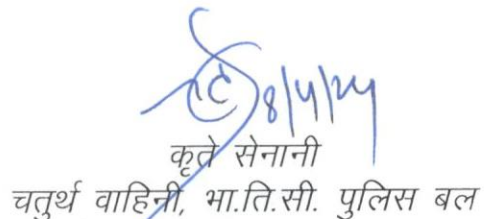 8/4/24
कृते सेनानी
चतुर्थ वाहिनी, भा.ति.सी. पुलिस बल